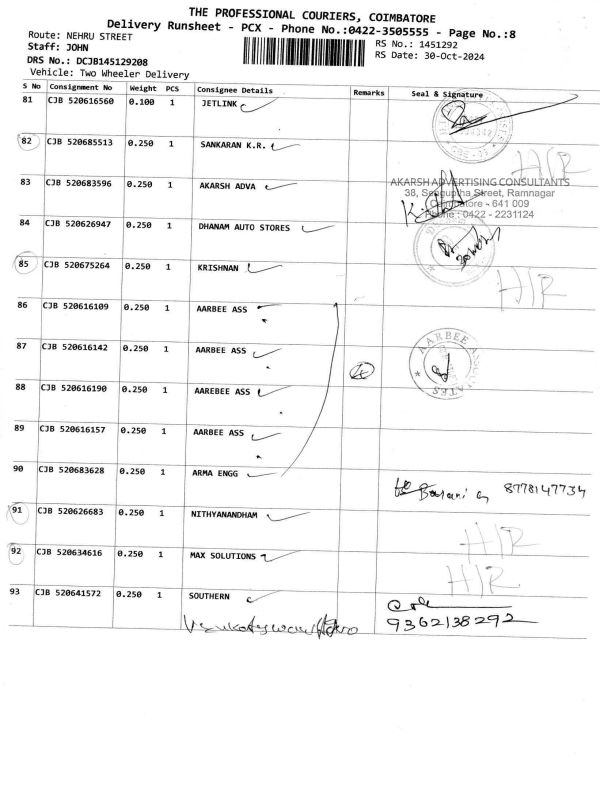 THE PROFESSIONAL COURIERS, COIMBATORE
Delivery Runsheet - PCX - Phone No.:0422-3505555 - Page No.:8
Route: NEHRU STREET
RS No.: 1451292
Staff: JOHN
RS Date: 30-Oct-2024
DRS No.: DCJB145129208
Vehicle: Two Wheeler Delivery
S No Consignment No Weight PCS Consignee Details Remarks Seal & Signature
81 CJB 520616560 0.100 1 JETLINK
82 CJB 520685513 0.250 1 SANKARAN K.R. H/R
83 CJB 520683596 0.250 1 AKARSH ADVA
AKARSH ADVERTISING CONSULTANTS
38, Senguptha Street, Ramnagar
Coimbatore - 641 009
Phone : 0422 - 2231124
84 CJB 520626947 0.250 1 DHANAM AUTO STORES
85 CJB 520675264 0.250 1 KRISHNAN H/R
86 CJB 520616109 0.250 1 AARBEE ASS
87 CJB 520616142 0.250 1 AARBEE ASS 4
AARBEE ASSOCIATES
88 CJB 520616190 0.250 1 AAREBEE ASS
89 CJB 520616157 0.250 1 AARBEE ASS
90 CJB 520683628 0.250 1 ARMA ENGG 8778147734
91 CJB 520626683 0.250 1 NITHYANANDHAM H/R
92 CJB 520634616 0.250 1 MAX SOLUTIONS H/R
93 CJB 520641572 0.250 1 SOUTHERN
9362138292